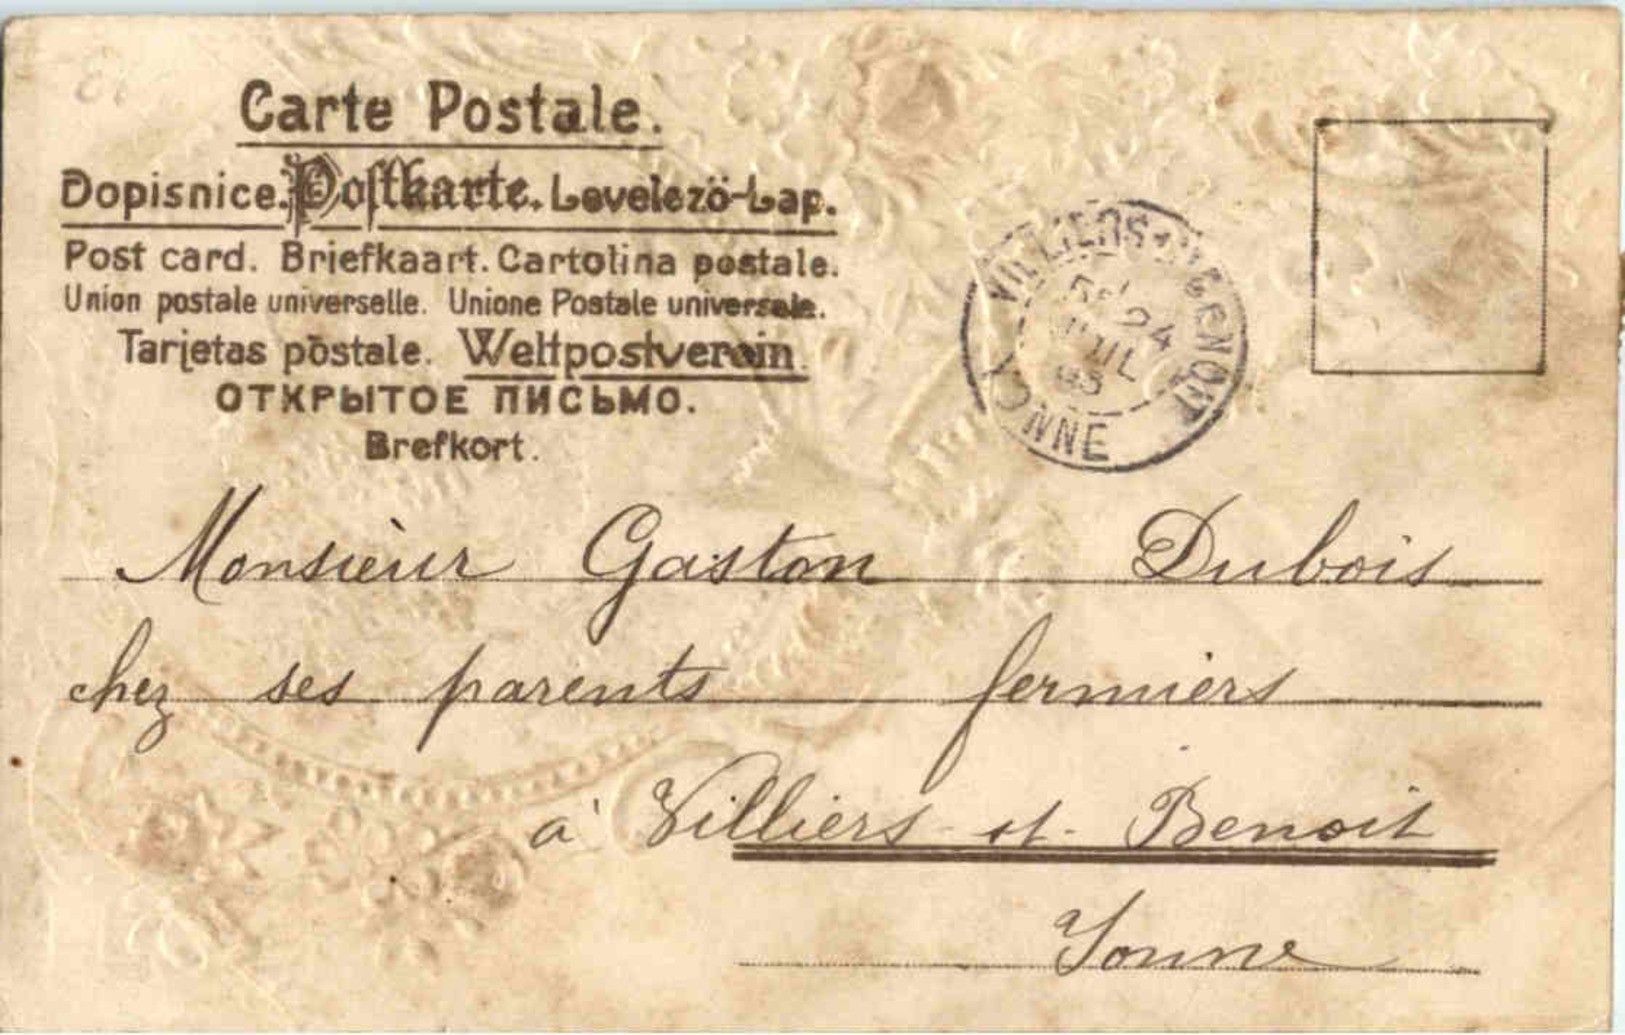 Carte Postale.
Dopisnice. Postkarte. Levelező-Lap.
Post card. Briefkaart. Cartolina postale.
Union postale universelle. Unione Postale universale.
Tarjetas postale. Weltpostverein.
ОТКРЫТОЕ ПИСЬМО.
Brefkort.
VILLIERS-ST-BENOIT
24
JUIL
YONNE
Monsieur Gaston Dubois
chez ses parents fermiers
à Villiers st. Benoit
Yonne